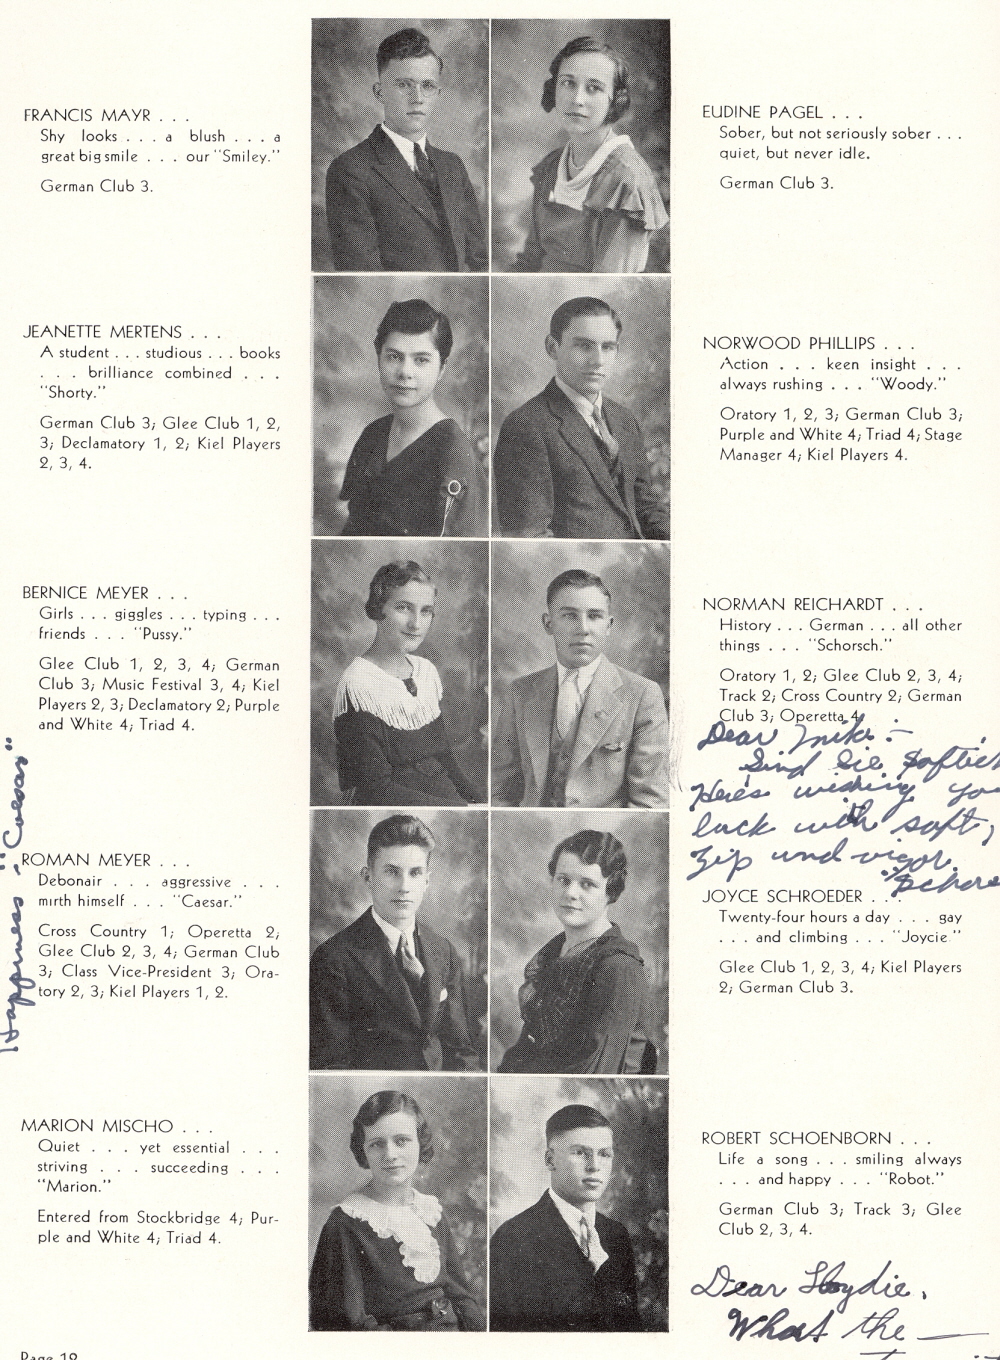 FRANCIS MAYR . . .
Shy looks . . . a blush . . . a
great big smile . . . our "Smiley."
German Club 3.
JEANETTE MERTENS . . .
A student . . . studious . . . books
. . . brilliance combined . . .
"Shorty."
German Club 3; Glee Club 1, 2,
3; Declamatory 1, 2; Kiel Players
2, 3, 4.
BERNICE MEYER . . .
Girls . . . giggles . . . typing . . .
friends . . . "Pussy."
Glee Club 1, 2, 3, 4; German
Club 3; Music Festival 3, 4; Kiel
Players 2, 3; Declamatory 2; Purple
and White 4; Triad 4.
Happiness - "Caesar"
ROMAN MEYER . . .
Debonair . . . aggressive . . .
mirth himself . . . "Caesar."
Cross Country 1; Operetta 2;
Glee Club 2, 3, 4; German Club
3; Class Vice-President 3; Ora-
tory 2, 3; Kiel Players 1, 2.
MARION MISCHO . . .
Quiet . . . yet essential . . .
striving . . . succeeding . . .
"Marion."
Entered from Stockbridge 4; Pur-
ple and White 4; Triad 4.
Page 19
EUDINE PAGEL . . .
Sober, but not seriously sober . . .
quiet, but never idle.
German Club 3.
NORWOOD PHILLIPS . . .
Action . . . keen insight . . .
always rushing . . . "Woody."
Oratory 1, 2, 3; German Club 3;
Purple and White 4; Triad 4; Stage
Manager 4; Kiel Players 4.
NORMAN REICHARDT . . .
History . . . German . . . all other
things . . . "Schorsch."
Oratory 1, 2; Glee Club 2, 3, 4;
Track 2; Cross Country 2; German
Club 3; Operetta 4.
Dear Mike:-
Sind Sie
Here's wishing you
luck with saft,
Zip und vigor.
JOYCE SCHROEDER . . .
Twenty-four hours a day . . . gay
. . . and climbing . . . "Joycie."
Glee Club 1, 2, 3, 4; Kiel Players
2; German Club 3.
ROBERT SCHOENBORN . . .
Life a song . . . smiling always
. . . and happy . . . "Robot."
German Club 3; Track 3; Glee
Club 2, 3, 4.
Dear Lloydie,
What the —